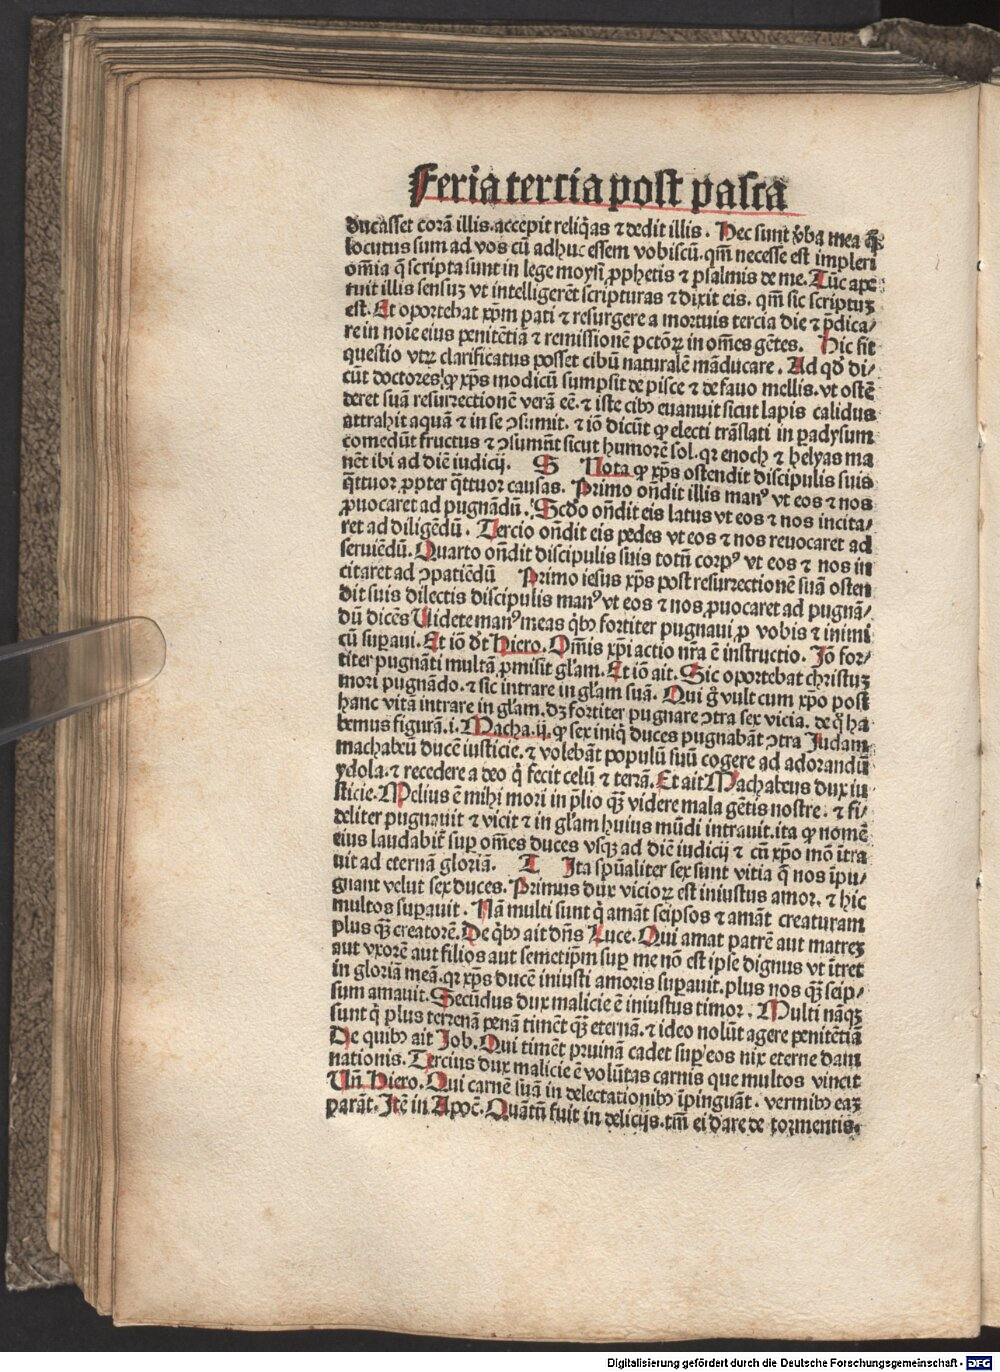 Feria tercia post pasca
ducasset corā illis. accepit reliq̄as ⁊ dedit illis. Hec sunt v̄ba mea q̄
locutus sum ad vos cū adhuc essem vobiscū. qm̄ necesse est impleri
om̄ia q̄ scripta sunt in lege moysi ꝓphetis ⁊ psalmis de me. Tūc ape
ruit illis sensuꝫ vt intelligerēt scripturas ⁊ dixit eis. qm̄ sic scriptuꝫ
est. Et oportebat xp̄m pati ⁊ resurgere a mortuis tercia die ⁊ p̄dica⸗
re in noīe eius penitētiā ⁊ remissionē pctōꝝ in om̄es gētes. Hic fit
questio vtꝝ clarificatus posset cibū naturalē māducare. Ad qd̄ di⸗
cūt doctores ꝙ xp̄s modicū sumpsit de pisce ⁊ de fauo mellis. vt ostē
deret suā resurrectionē verā eē. ⁊ iste cibꝰ euanuit sicut lapis calidus
attrahit aquā ⁊ in se ↄsumit. ⁊ iō dicūt ꝙ electi trāslati in padysum
comedūt fructus ⁊ ↄsumūt sicut humorē sol. qr enoch ⁊ helyas ma
nēt ibi ad diē iudicij. S Nota ꝙ xp̄s ostendit discipulis suis
q̄ttuor ꝓpter q̄ttuor causas. Primo oñdit illis manꝰ vt eos ⁊ nos
ꝓuocaret ad pugnādū. Scd̄o oñdit eis latus vt eos ⁊ nos incita⸗
ret ad diligēdū. Tercio oñdit eis pedes vt eos ⁊ nos reuocaret ad
seruiēdū. Quarto oñdit discipulis suis totū corpꝰ vt eos ⁊ nos in
citaret ad ↄpatiēdū Primo iesus xp̄s post resurrectionē suā osten
dit suis dilectis discipulis manꝰ vt eos ⁊ nos ꝓuocaret ad pugnā⸗
dū dicēs Uidete manꝰ meas q̄bꝰ fortiter pugnaui ꝓ vobis ⁊ inimi
cū suꝑaui. Et iō dt̄ Hiero. Om̄is xp̄i actio nr̄a ē instructio. Iō for⸗
titer pugnāti multā ꝓmisit gl̄am. Et iō ait. Sic oportebat christuꝫ
mori pugnādo. ⁊ sic intrare in gl̄am suā. Qui g̊ vult cum xp̄o post
hanc vitā intrare in gl̄am. dꝫ fortiter pugnare ↄtra sex vicia. de q̊ ha
bemus figurā. i. Macha. ij. ꝙ sex iniq̇ duces pugnabāt ↄtra Iudam
machabeū ducē iusticie. ⁊ volebāt populū suū cogere ad adorandū
ydola. ⁊ recedere a deo q̇ fecit celū ⁊ terrā. Et ait Machabeus dux iu
sticie. Melius ē mihi mori in p̄lio q̄ꝫ videre mala gētis nostre. ⁊ fi⸗
deliter pugnauit ⁊ vicit ⁊ in gl̄am huius mūdi intrauit. ita ꝙ nomē
eius laudabit̄ suꝑ om̄es duces vsqꝫ ad diē iudicij ⁊ cū xp̄o mō ītra
uit ad eternā gloriā. T Ita sp̄ualiter sex sunt vitia q̄ nos īpu⸗
gnant velut sex duces. Primus dux vicioꝝ est iniustus amor. ⁊ hic
multos suꝑauit. Nā multi sunt q̇ amāt seipsos ⁊ amāt creaturam
plus q̄ꝫ creatorē. De q̇bꝰ ait dn̄s Luce. Qui amat patrē aut matreꝫ
aut vxorē aut filios aut semetip̄m suꝑ me nō est ipse dignus vt ītret
in gloriā meā. qr xp̄s ducē iniusti amoris suꝑauit. plus nos q̄ꝫ seip⸗
sum amauit. Secūdus dux malicie ē iniustus timor. Multi nāqꝫ
sunt q̇ plus terrenā penā timēt q̄ꝫ eternā. ⁊ ideo nolūt agere penitētiā
De quibꝰ ait Job. Qui timēt pruinā cadet suꝑ eos nix eterne dam
nationis. Tercius dux malicie ē volūtas carnis que multos vincit
Uñ Hiero. Qui carnē suā in delectationibꝰ īpinguāt. vermibꝰ eaꝫ
parāt. Itē in Apoc̄. Quātū fuit in delicijs. tm̄ ei dare de tormentis.
Digitalisierung gefördert durch die Deutsche Forschungsgemeinschaft - DFG